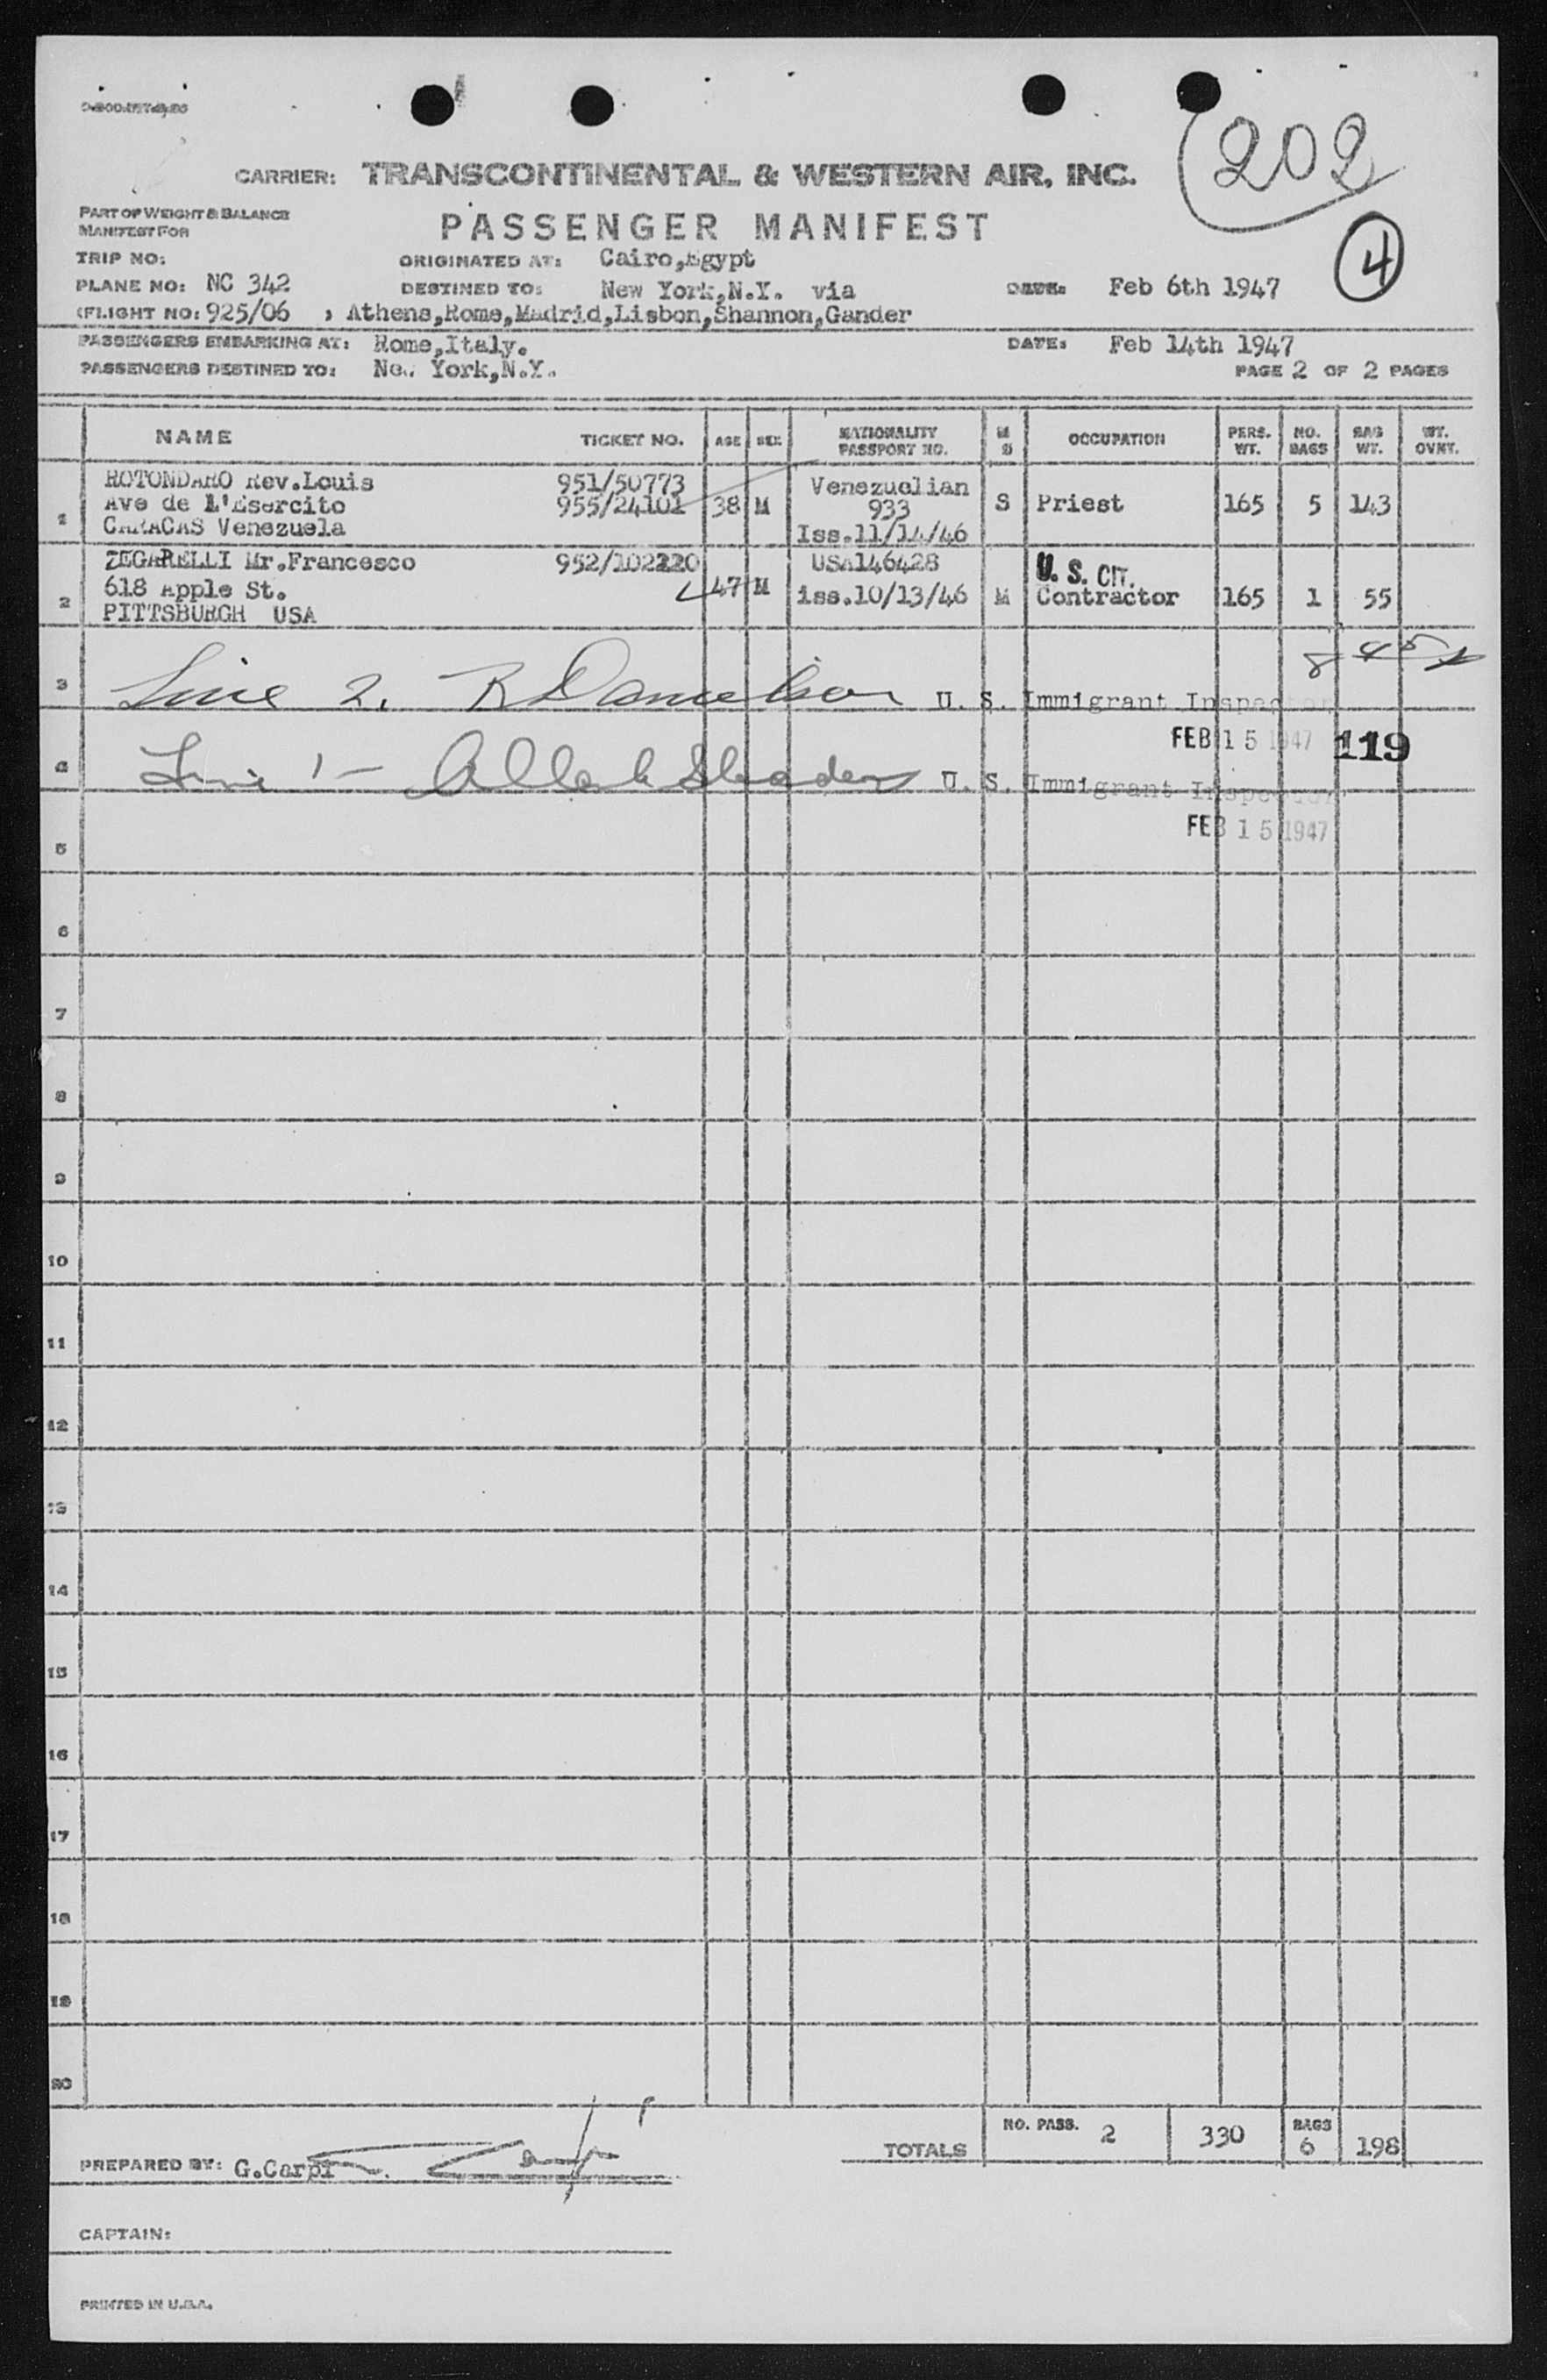 202
CARRIER: TRANSCONTINENTAL & WESTERN AIR, INC.
PART OF WEIGHT & BALANCE
MANIFEST FOR
PASSENGER MANIFEST
4
TRIP NO:
ORIGINATED AT: Cairo,Egypt
PLANE NO: NC 342
DESTINED TO: New York,N.Y. via
DATE: Feb 6th 1947
(FLIGHT NO: 925/06 , Athens,Rome,Madrid,Lisbon,Shannon,Gander
PASSENGERS EMBARKING AT: Rome,Italy.
DATE: Feb 14th 1947
PASSENGERS DESTINED TO: New York,N.Y.
PAGE 2 OF 2 PAGES
NAME TICKET NO. AGE SEX NATIONALITY PASSPORT NO. M S OCCUPATION PERS. WT. NO. BAGS BAG WT. WT. OVWT.
ROTONDARO Rev.Louis 951/50773 Venezuelian
1 Ave de L'Esercito 955/24101 38 M 933 S Priest 165 5 143
CARACAS Venezuela Iss.11/14/46
ZEGARELLI Mr.Francesco 952/102220 USA146428 U. S. CIT.
2 618 Apple St. 47 M iss.10/13/46 M Contractor 165 1 55
PITTSBURGH USA
3 Line 2. R Danielson U. S. Immigrant Inspector
FEB 15 1947 119
4 Line 1 - U. S. Immigrant Inspector
FEB 15 1947
5
6
7
8
9
10
11
12
13
14
15
16
17
18
19
20
TOTALS NO. PASS. 2 330 BAGS 6 198
PREPARED BY: G.Carpi
CAPTAIN:
PRINTED IN U.S.A.